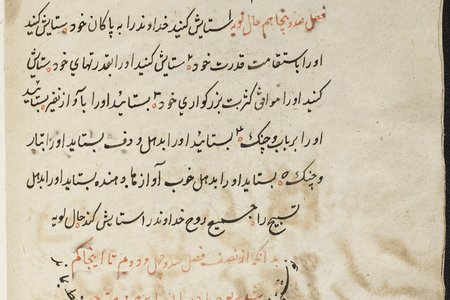 فصل صد و پنجاهم حال لویه استایش کنید خداوند را به پاکان خود ستایش کنید
اورا استقامت قدرت خود ۲ ستایش کنید اورا بقدرتهای خود ستایش
کنید اورا موافق کثرت بزرکواری خود ۳ بستائید اورا با آواز نفیر بستائید
اورا برباب و چنک ۴ بستائید اورا بدهل و دف بستاید اورا بتار
و چنک ۵ بستاید اورا بدهل خوب آواز بستاید اورا بدهل
تسبیح را جمیع روح خداوند را ستایش کند حال لویه
بدانکه از نصف فصل صد و چهل و دوم تا اینجا کم